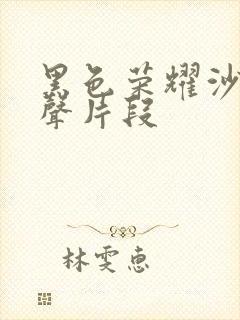 黑色荣耀沙
聲片段
林雯惠